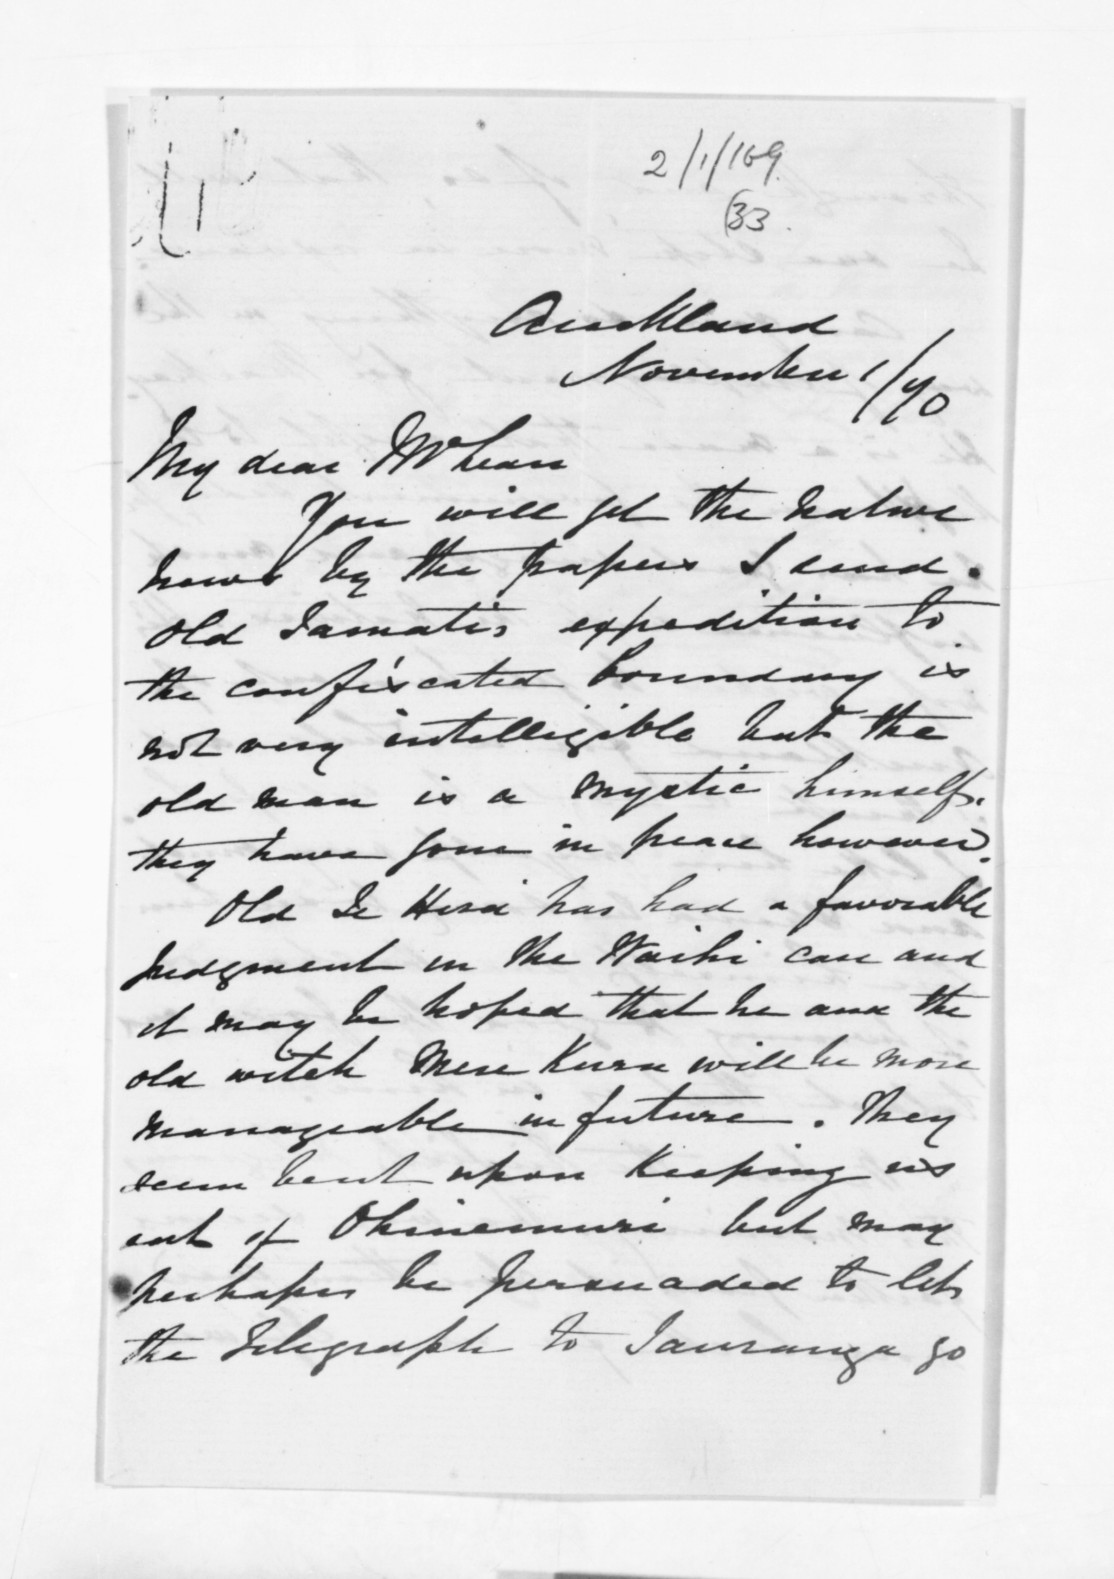 2/1/169
(33.
Auckland
November 1/70
My dear McLean
You will get the native
news by the papers I send.
Old Tamati's expedition to
the confiscated boundary is
not very intelligible but the
old man is a mystic himself.
they have gone in peace however.
Old Te Hira has had a favorable
judgment in the Waihi case and
it may be hoped that he and the
old witch Mere Kuru will be more
manageable in future. They
seem bent upon keeping us
out of Ohinemuri but may
perhaps be persuaded to let
the Telegraph to Tauranga go